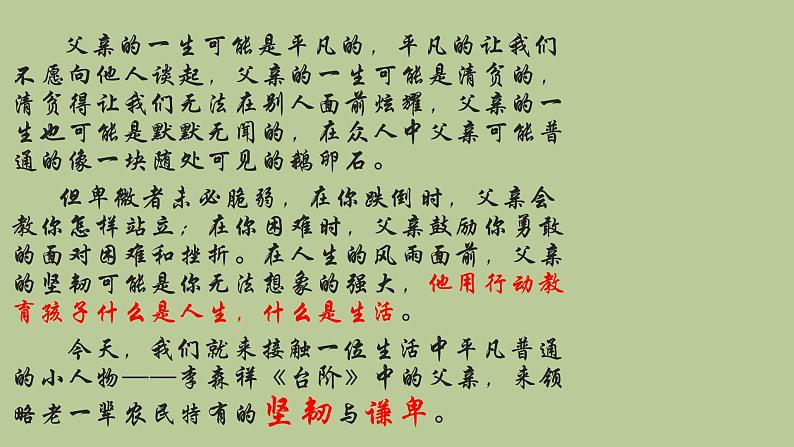 父亲的一生可能是平凡的，平凡的让我们
不愿向他人谈起，父亲的一生可能是清贫的，
清贫得让我们无法在别人面前炫耀，父亲的一
生也可能是默默无闻的，在众人中父亲可能普
通的像一块随处可见的鹅卵石。
但卑微者未必脆弱，在你跌倒时，父亲会
教你怎样站立；在你困难时，父亲鼓励你勇敢
的面对困难和挫折。在人生的风雨面前，父亲
的坚韧可能是你无法想象的强大，他用行动教
育孩子什么是人生，什么是生活。
今天，我们就来接触一位生活中平凡普通
的小人物——李森祥《台阶》中的父亲，来领
略老一辈农民特有的坚韧与谦卑。